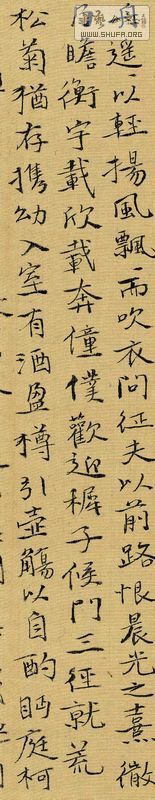 WWW.SHUFA.ORG
舟遥〻以輕揚風飄〻而吹衣問征夫以前路恨晨光之熹微
乃瞻衡宇載欣載奔僮僕歡迎穉子候門三徑就荒
松菊猶存携幼入室有酒盈樽引壺觴以自酌眄庭柯